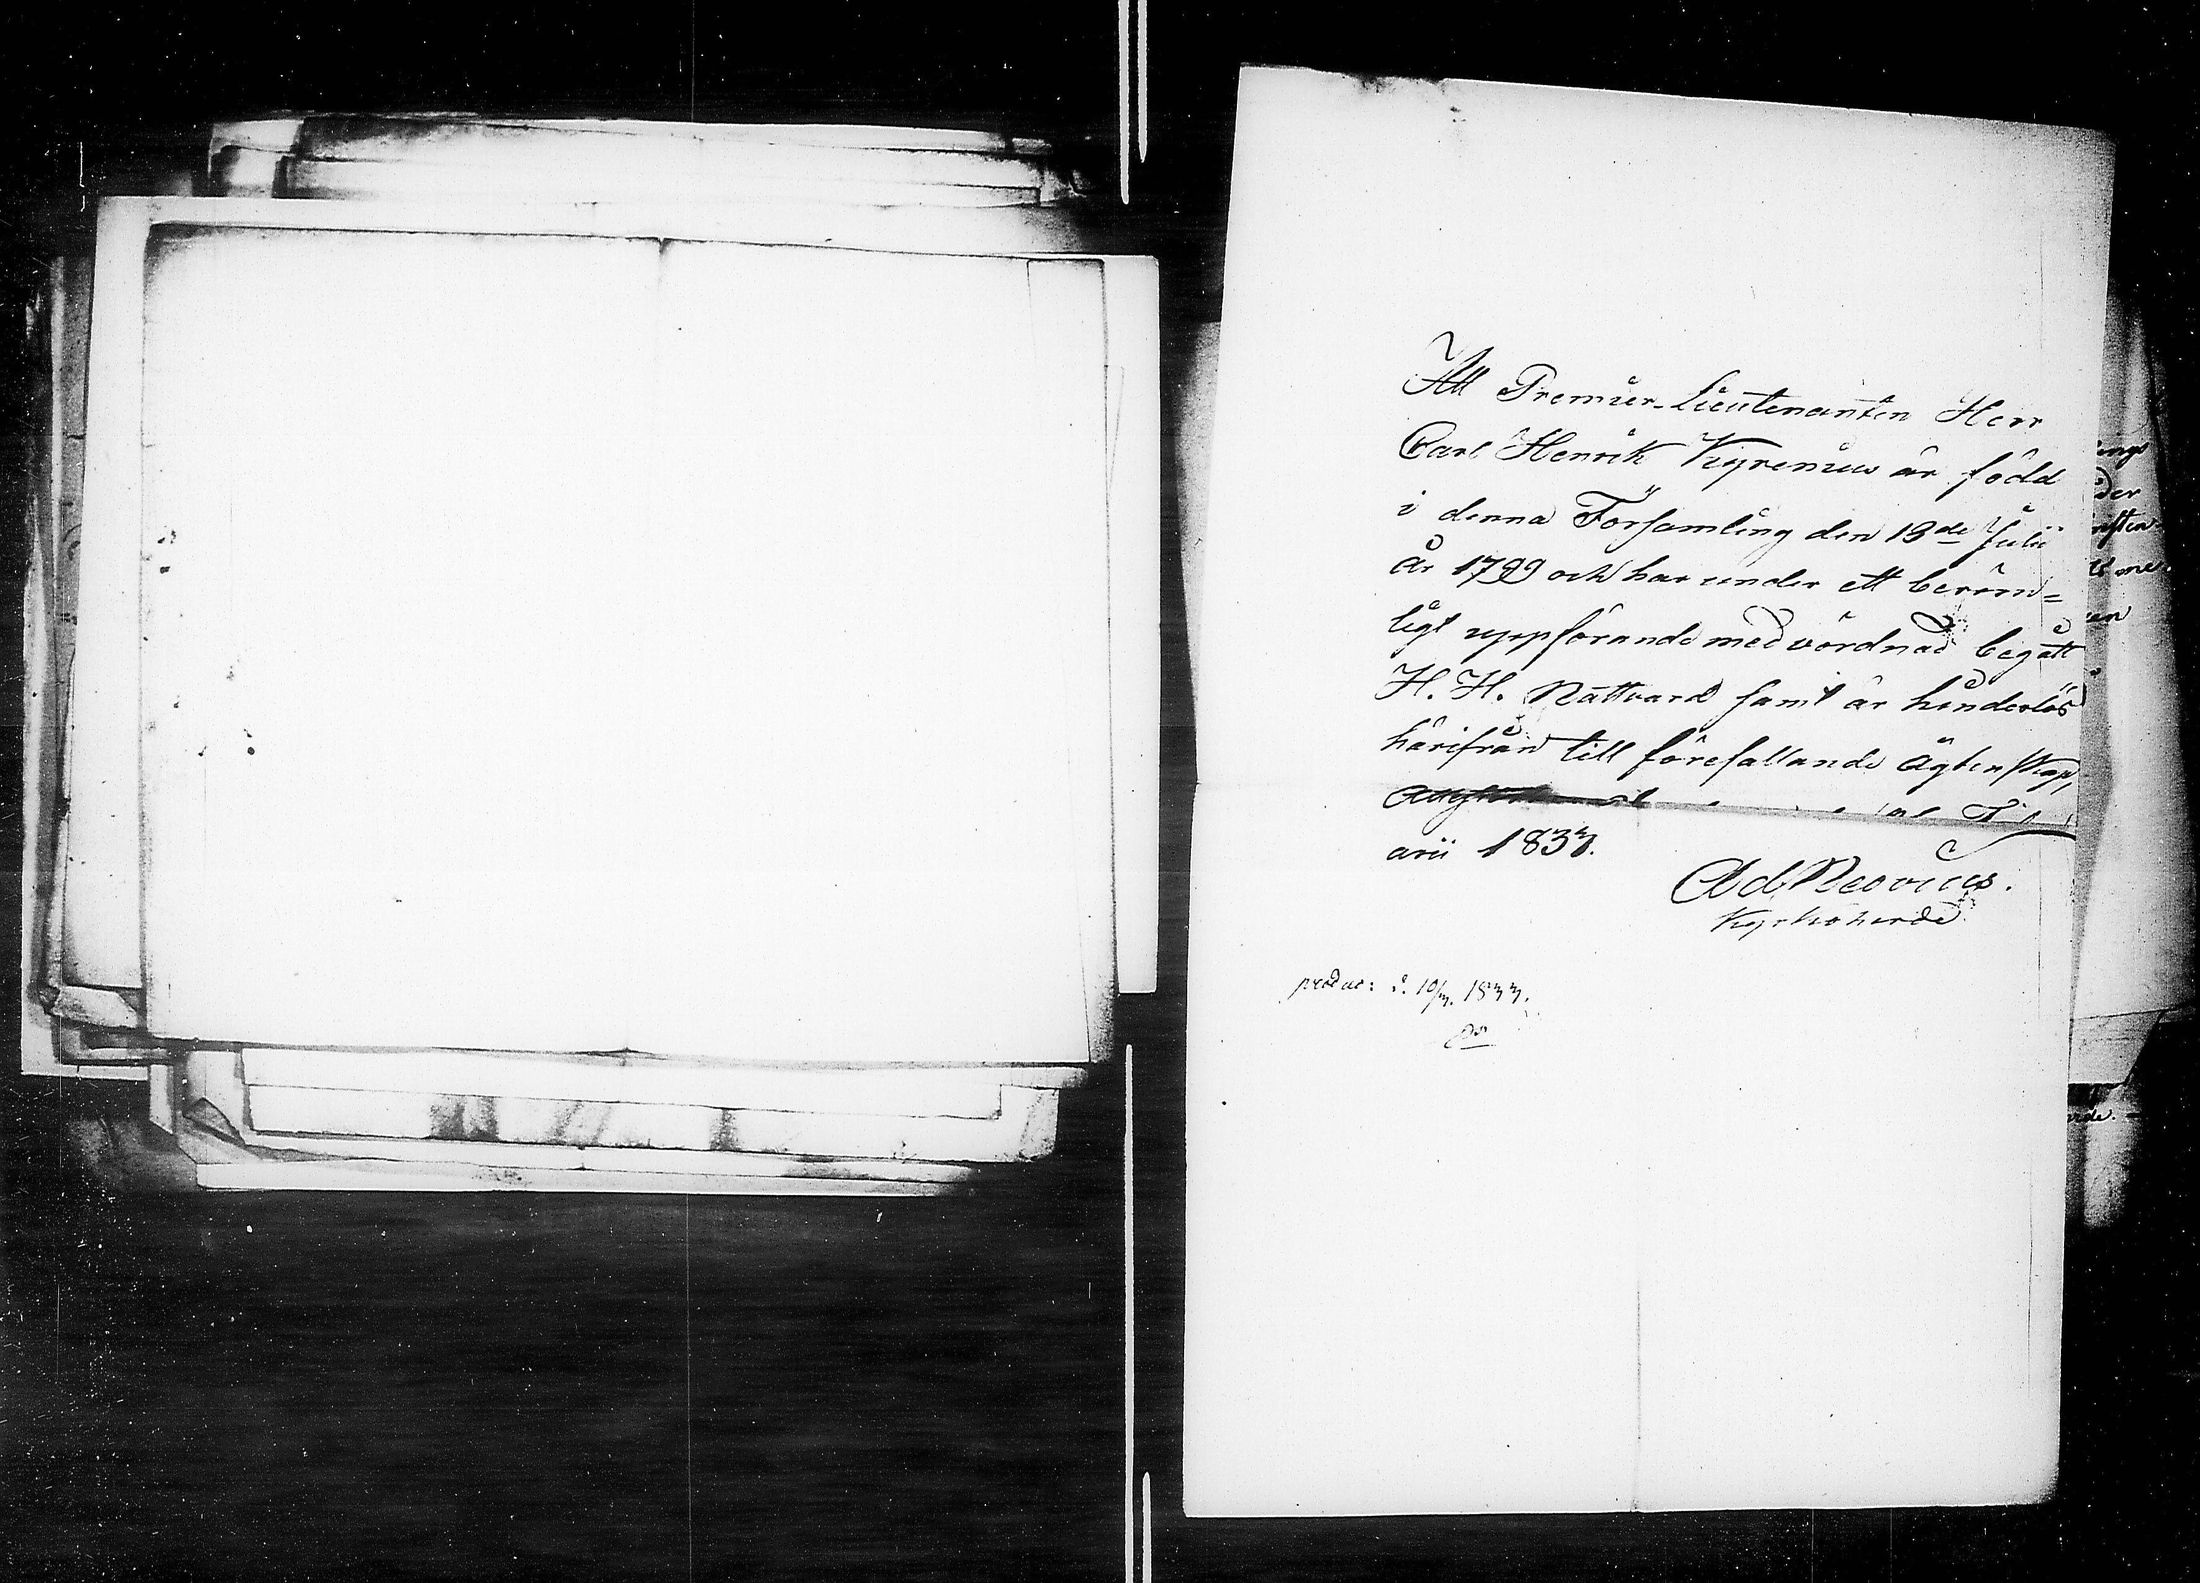 Att Premier-Lieutenanten Herr
Carl Henrik Kyrenius är född
i denna Församling den 13de Julii
år 1799 och har under ett beröm=
ligt uppförande med vördnad begått
H. H. Nattvard samt är hinderlös
härifrån till förefallande ägtenskap,
arii 1833.
Ad. Neovius.
Kyrkoherde
produc: d. 10/3. 1833.